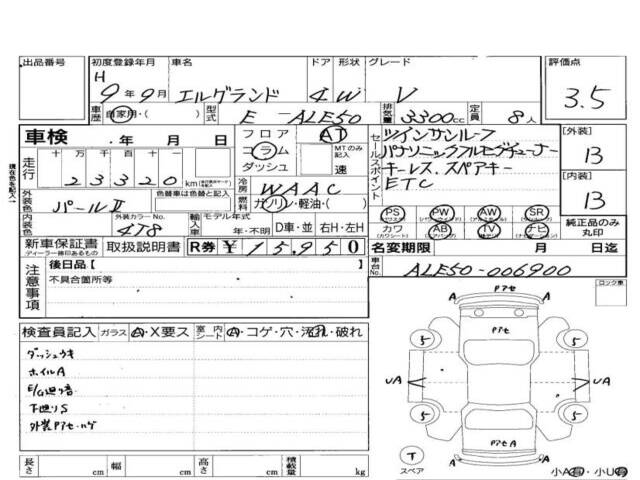 出品番号 初度登録年月 車名 ドア 形状 グレード 評価点
H 9年9月 エルグランド 4 W V 3.5
車歴 自家用・( ) 型式 E-ALE50 排気量 3300cc 定員 8人
車検 ・ 年 月 日
フロア AT
コラム MTのみ記入
ダッシュ 速
セールスポイント
ツインサンルーフ
パナソニックフルセグチューナー
キーレス.スペアキー
ETC
[外装] B
[内装] B
現在色名記入
走行 十 万 千 百 十 一
23320 km
冷房 WAAC
外装色 パールⅡ 色替車は色替と記入
燃料 ガソリン・軽油・( )
内装色 外装カラーNo. 4T8 輸入車 モデル年式 年・不明 D車・並 右H・左H
PS PW AW SR
カワ AB TV ナビ
純正品のみ丸印
新車保証書 取扱説明書 R券 ¥15,950
ディーラー捺印あるもの
名変期限 月 日迄
車台No. ALE50-006900
注意事項
後日品[ ]
不具合箇所等
ロック車
検査員記入 ガラス A・X要ス 室内シート A・コゲ・穴・汚れ・破れ
ダッシュウキ
ホイルA
E/G廻り音
下廻りS
外装Pアセ・ハゲ
Pアセ
A A
Pアセ
5 5
UA UA
5 5
PアセA
A A
T
スペア
小A有・小U有
長さ cm 幅 cm 高さ cm 積載量 kg